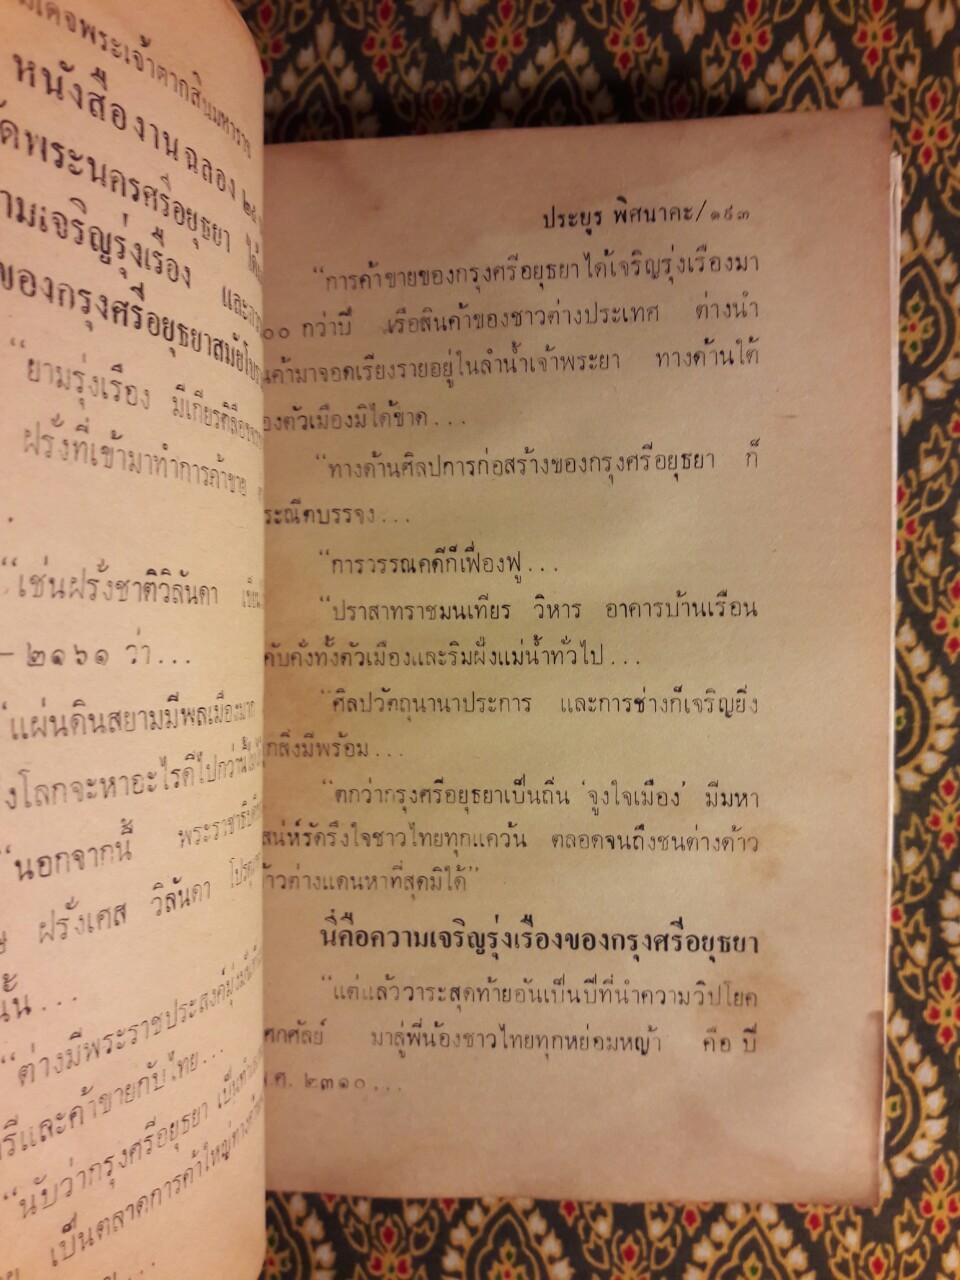 สมเด็จพระเจ้าตากสินมหาราช
หนังสืองานฉลอง ๒๕
พระนครศรีอยุธยา
ความเจริญรุ่งเรือง และ
ของกรุงศรีอยุธยาสมัยโบ
“ยามรุ่งเรือง มีเกียรติ
ฝรั่งที่เข้ามาทำการค้าขาย
“เช่นฝรั่งชาติวิลันดา
– ๒๑๖๑ ว่า...
“แผ่นดินสยามมีพลเมืองมาก
โลกจะหาอะไรดีไปกว่านี้
“นอกจากนี้ พระราชาธิบดี
ฝรั่งเศส วิลันดา โปรตุ
นั้น...
“ต่างมีพระราชประสงค์มุ่ง
และค้าขายกับไทย...
“นับว่ากรุงศรีอยุธยา เป็น
เป็นตลาดการค้าใหญ่ทาง
ประยุร พิศนาคะ/๑๙๓
“การค้าขายของกรุงศรีอยุธยาได้เจริญรุ่งเรืองมา
๐๐ กว่าปี เรือสินค้าของชาวต่างประเทศ ต่างนำ
นค้ามาจอดเรียงรายอยู่ในลำน้ำเจ้าพระยา ทางด้านใต้
องตัวเมืองมิได้ขาด...
“ทางด้านศิลปการก่อสร้างของกรุงศรีอยุธยา ก็
ระณีตบรรจง...
“การวรรณคดีก็เฟื่องฟู...
“ปราสาทราชมนเทียร วิหาร อาคารบ้านเรือน
คับคั่งทั้งตัวเมืองและริมฝั่งแม่น้ำทั่วไป...
“ศิลปวัตถุนานาประการ และการช่างก็เจริญยิ่ง
ุกสิ่งมีพร้อม...
“ตกว่ากรุงศรีอยุธยาเป็นถิ่น ‘จูงใจเมือง’ มีมหา
สน่ห์รัดรึงใจชาวไทยทุกแคว้น ตลอดจนถึงชนต่างด้าว
ท้าวต่างแดนหาที่สุดมิได้”
นี่คือความเจริญรุ่งเรืองของกรุงศรีอยุธยา
“แต่แล้ววาระสุดท้ายอันเป็นปีที่นำความวิปโยค
ศกศัลย์ มาสู่พี่น้องชาวไทยทุกหย่อมหญ้า คือ ปี
พ.ศ. ๒๓๑๐...